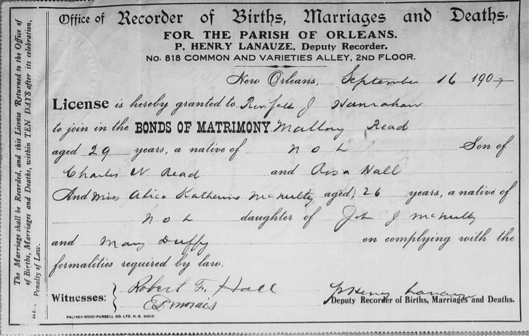 Office of Recorder of Births, Marriages and Deaths.
FOR THE PARISH OF ORLEANS.
P. HENRY LANAUZE, Deputy Recorder.
No. 818 COMMON AND VARIETIES ALLEY, 2ND FLOOR.
New Orleans, September 16 1907
License is hereby granted to J Hanrahan
to join in the BONDS OF MATRIMONY Mallory Read
aged 29 years, a native of N O L Son of
Charles N. Read and Rosa Hall
And Miss Alice Katherine McNulty aged 26 years, a native of
N O L daughter of Joh J McNulty
and Mary Duffy on complying with the
formalities required by law.
Witnesses: Robert F. Hall
P Henry Lanauze
Deputy Recorder of Births, Marriages and Deaths.
The Marriage shall be Recorded, and this License Returned to the Office
of Births, Marriages and Deaths, within TEN DAYS after its celebration,
Penalty of Law.